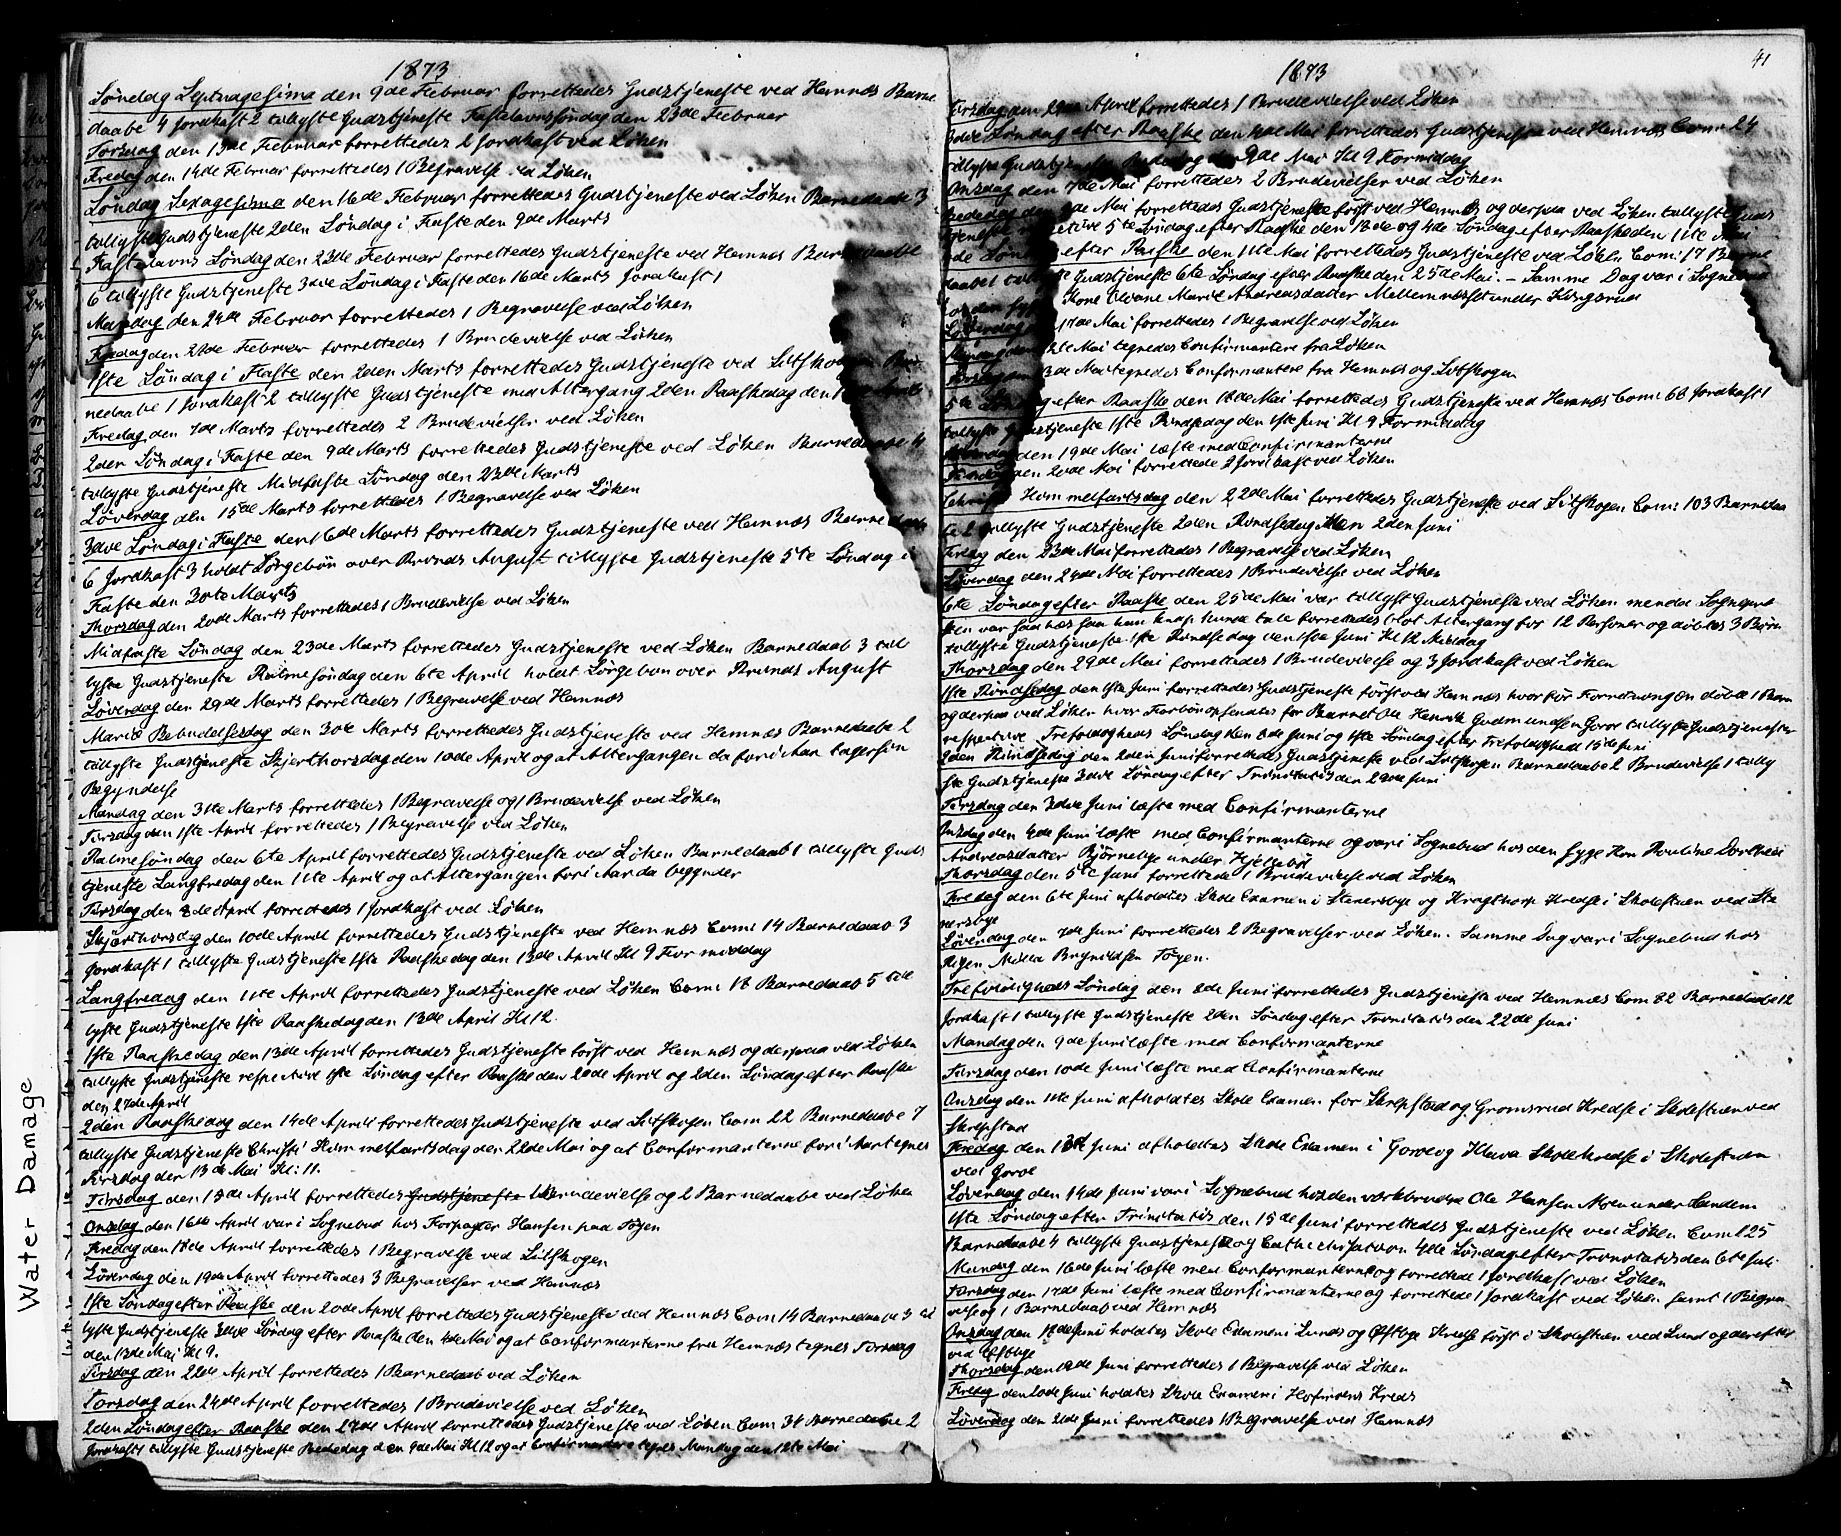 1873
Søndag Septuagesima den 9de Februar forrettedes Gudstjeneste ved Hemnæs Barne
daabe 4 Jordkast 2 tillyste Gudstjeneste Fastelavnssøndag den 23de Februar
Torsdag den 13de Februar forrettedes 2 Jordkast ved Løken
Fredag den 14de Februar forrettedes 1 Begravelse ved Løken
Søndag Sexagesima den 16de Februar forrettedes Gudstjeneste ved Løken Barnedaabe 3
tillyste Gudstjeneste 2den Søndag i Faste den 9de Marts
Fastelavns Søndag den 23de Februar forrettedes Gudstjeneste ved Hemnæs Barnedaabe
6 tillyste Gudstjeneste 3die Søndag i Faste den 16de Marts Jordkast 1
Mandag den 24de Februar forrettedes 1 Begravelse ved Løken
Fredag den 28de Februar forrettedes 1 Brudevielse ved Løken
1ste Søndag i Faste den 2den Marts forrettedes Gudstjeneste ved Setskogen Bar
nedaabe 1 Jordkast 2 tillyste Gudstjeneste med Altergang 2den Paaskedag den
Fredag den 7de Marts forrettedes 2 Brudevielser ved Løken
2den Søndag i Faste den 9de Marts forrettedes Gudstjeneste ved Løken Barnedaabe 4
tillyste Gudstjeneste Midfaste Søndag den 23de Marts
Løverdag den 15de Marts forrettedes 1 Begravelse ved Løken
3die Søndag i Faste den 16de Marts forrettedes Gudstjeneste ved Hemnæs Barnedaab
6 Jordkast 3 holdt Sørgebøn over Prinds August tillyste Gudstjeneste 5te Søndag i
Faste den 30te Marts
Thorsdag den 20de Marts forrettedes 1 Brudevielse ved Løken
Midfaste Søndag den 23de Marts forrettedes Gudstjeneste ved Løken Barnedaab 3 till
lyste Gudstjeneste Palmesøndag den 6te April holdt Sørgebøn over Prinds August
Løverdag den 29de Marts forrettedes 1 Begravelse ved Hemnæs
Mariæ Bebudelsesdag den 30te Marts forrettedes Gudstjeneste ved Hemnæs Barnedaabe 2
tillyste Gudstjeneste Skjærthorsdag den 10de April og at Altergangen da for i Aar tager sin
Begyndelse
Mandag den 31te Marts forrettedes 1 Begravelse og 1 Brudevielse ved Løken
Tirsdag den 1ste April forrettedes 1 Begravelse ved Løken
Palmesøndag den 6te April forrettedes Gudstjeneste ved Løken Barnedaab 1 tillyste Guds
tjeneste Langfredag den 11te April og at Altergangen for i Aar da begynder
Tirsdag den 8de April forrettedes 1 Jordkast ved Løken
Skjærthorsdag den 10de April forrettedes Gudstjeneste ved Hemnæs Com: 14 Barnedaab 3
Jordkast 1 tillyste Gudstjeneste 1ste Paaskedag den 13de April Kl 9 Formiddag
Langfredag den 11te April forrettedes Gudstjeneste ved Løken Com: 18 Barnedaab 5 till
lyste Gudstjeneste 1ste Paaskedag den 13de April Kl 12.
1ste Paaskedag den 13de April forrettedes Gudstjeneste først ved Hemnæs og derpaa ved Løken
tillyste Gudstjeneste respective 1ste Søndag efter Paaske den 20de April og 2den Søndag efter Paaske
den 27de April
2den Paaskedag den 14de April forrettedes Gudstjeneste ved Setskogen Com 22 Barnedaabe 7
tillyste Gudstjeneste Christi Himmelfartsdag den 22de Mai og at Confirmanterne for i Aar tegnes
Tirsdag den 13de Mai Kl: 11.
Tirsdag den 15de April forrettedes Gudstjeneste 1 Brudevielse og 2 Barnedaabe ved Løken
Onsdag den 16de April var i Sognebud hos Forpagter Hansen paa Toyen
Fredag den 18de April forrettedes 1 Begravelse ved Setskogen
Løverdag den 19de April forrettedes 3 Begravelser ved Hemnæs
1ste Søndag efter Paaske den 20de April forrettedes Gudstjeneste ved Hemnæs Com 14 Barnedaabe 3 til
lyste Gudstjeneste 3die Søndag efter Paaske den 4de Mai og at Confirmanterne fra Hemnæs tegnes Torsdag
den 13de Mai Kl 9.
Tirsdag den 22de April forrettedes 1 Barnedaab ved Løken
Torsdag den 24de April forrettedes 1 Brudevielse ved Løken
2den Søndag efter Paaske den 27de April forrettedes Gudstjeneste ved Løken Com 34 Barnedaabe 2
Jordkast 1 tillyste Gudstjeneste Bededag den 9de Mai Kl 12 og at Confirmanterne tegnes Mandag den 12te Mai
1873
41
Tirsdag den 29de April forrettedes 1 Brudevielse ved Løken
3die Søndag efter Paaske den 4de Mai forrettedes Gudstjeneste ved Hemnæs Com: 24
tillyste Gudstjeneste Bededag den 9de Mai Kl 9 Formiddag
Onsdag den 7de Mai forrettedes 2 Brudevielser ved Løken
Bededag den 9de Mai forrettedes Gudstjeneste først ved Hemnæs og derpaa ved Løken tillyste Guds
tjeneste respective 5te Søndag efter Paaske den 18de og 4de Søndag efter Paaske den 11te Mai
4de Søndag efter Paaske den 11te Mai forrettedes Gudstjeneste ved Løken Com: 17 Barne
daabe 1 tillyste Gudstjeneste 6te Søndag efter Paaske den 25de Mai. - Samme Dag var i Sognebud
hos den syge Kone Oleane Marie Andreasdatter Mellemnæsset under Kragsrud
Løverdag 17de Mai forrettedes 1 Begravelse ved Løken
Mandag den 12te Mai tegnedes Confirmantere fra Løken
Tirsdag den 13de Mai tegnedes Confirmantere fra Hemnæs og Setskogen
5te Søndag efter Paaske den 18de Mai forrettedes Gudstjeneste ved Hemnæs Com: 68 Jordkast 1
tillyste Gudstjeneste 1ste Pindsedag den 1ste Juni Kl 9 Formiddag
Mandag den 19de Mai læste med Confirmanterne
Tirsdag den 20de Mai forrettede 2 Jordkast ved Løken
Christi Himmelfartsdag den 22de Mai forrettedes Gudstjeneste ved Setskogen Com: 103 Barnedaa
be 2 tillyste Gudstjeneste 2den Pindsedag den 2den Juni
Fredag den 23de Mai forrettedes 1 Begravelse ved Løken
Løverdag den 24de Mai forrettedes 1 Brudevielse ved Løken
6te Søndag efter Paaske den 25de Mai var tillyst Gudstjeneste ved Løken men da Sognepræ
sten var saa hæs saa han knap kunde tale forrettedes blot Altergang for 12 Personer og døbtes 3 Børn
tillyste Gudstjeneste 1ste Pindsedag den 1ste Juni Kl 12 Middag
Thorsdag den 29de Mai forrettedes 1 Brudevielse og 3 Jordkast ved Løken
1ste Pindsedag den 1ste Juni forrettedes Gudstjeneste først ved Hemnæs hvor før Forretningen døbte 1 Barn
og derpaa ved Løken hvor Forbøn opsendtes for Barnet Ole Henrik Gudmundsen Gorov tillyste Gudstjenester
respective Trefoldigheds Søndag den 8de Juni og 1ste Søndag efter Trefoldighed 15de Juni
2den Pindsedag den 2den Juni forrettedes Gudstjeneste ved Setskogen Barnedaabe 2 Brudevielse 1 tilly
ste Gudstjeneste 3die Søndag efter Trinitatis den 29de Juni
Tirsdag den 3die Juni læste med Confirmanterne
Onsdag den 4de Juni læste med Confirmanterne og var i Sognebud hos den syge Kone Pauline Dorthea
Andreasdatter Bjørnebye under Hjellebøl
Thorsdag den 5te Juni forrettede 1 Brudevielse ved Løken
Fredag den 6te Juni afholdtes Skole Examen i Stenersbye og Kragthorp Kredse i Skolestuen ved Ste
nersbye
Løverdag den 7de Juni forrettedes 2 Begravelser ved Løken. Samme Dag var i Sognebud hos
Pigen Milla Brynildsen Toyen.
Trefoldigheds Søndag den 8de Juni forrettedes Gudstjeneste ved Hemnæs Com 82 Barnedaabe 12
Jordkast 1 tillyste Gudstjeneste 2den Søndag efter Trinitatis den 22de Juni
Mandag den 9de Juni læste med Confirmanterne
Tirsdag den 10de Juni læste med Confirmanterne
Onsdag den 11te Juni afholdtes Skole Examen for Skrepstad og Gromsrud Kredse i Skolestuen ved
Skrepstad
Fredag den 13de Juni afholdtes Skole Examen i Gorov og Kleva Skolekredse i Skolestuen
ved Gorov
Løverdag den 14de Juni var i Sognebud hos den værkbrudne Ole Hansen Moen under Sandem
1ste Søndag efter Trinitatis den 15de Juni forrettedes Gudstjeneste ved Løken Com 125
Barnedaabe 4 tillyste Gudstjeneste og Cathechisation 4de Søndag efter Trinitatis den 6te Juli
Mandag den 16de Juni læste med Confirmanterne og forrettede 1 Jordkast ved Løken
Tirsdag den 17de Juni læste med Confirmanterne og forrettede 1 Jordkast ved Løken samt 1 Begra-
velse og 1 Barnedaab ved Hemnæs
Onsdag den 18de Juni holdtes Skole Examen i Lunds og Østbye Kredse først i Skolestuen ved Lund og derefter
ved Østbye
Thorsdag den 19de Juni forrettedes 1 Begravelse ved Løken
Fredag den 20de Juni holdtes Skole Examen i Hofindens Kreds
Løverdag den 21de Juni forrettedes 1 Begravelse ved Hemnæs
Water Damage